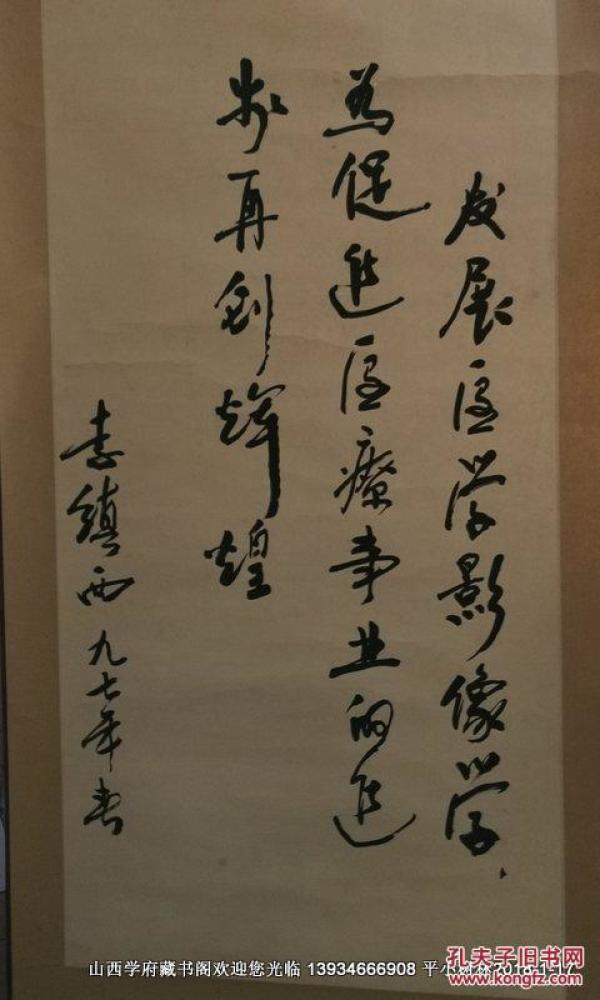 发展医学影像学、
为促进医疗事业的进
步再创辉煌
李镇西九七年春
孔夫子旧书网
www.kongfz.com
山西学府藏书阁欢迎您光临 13934666908